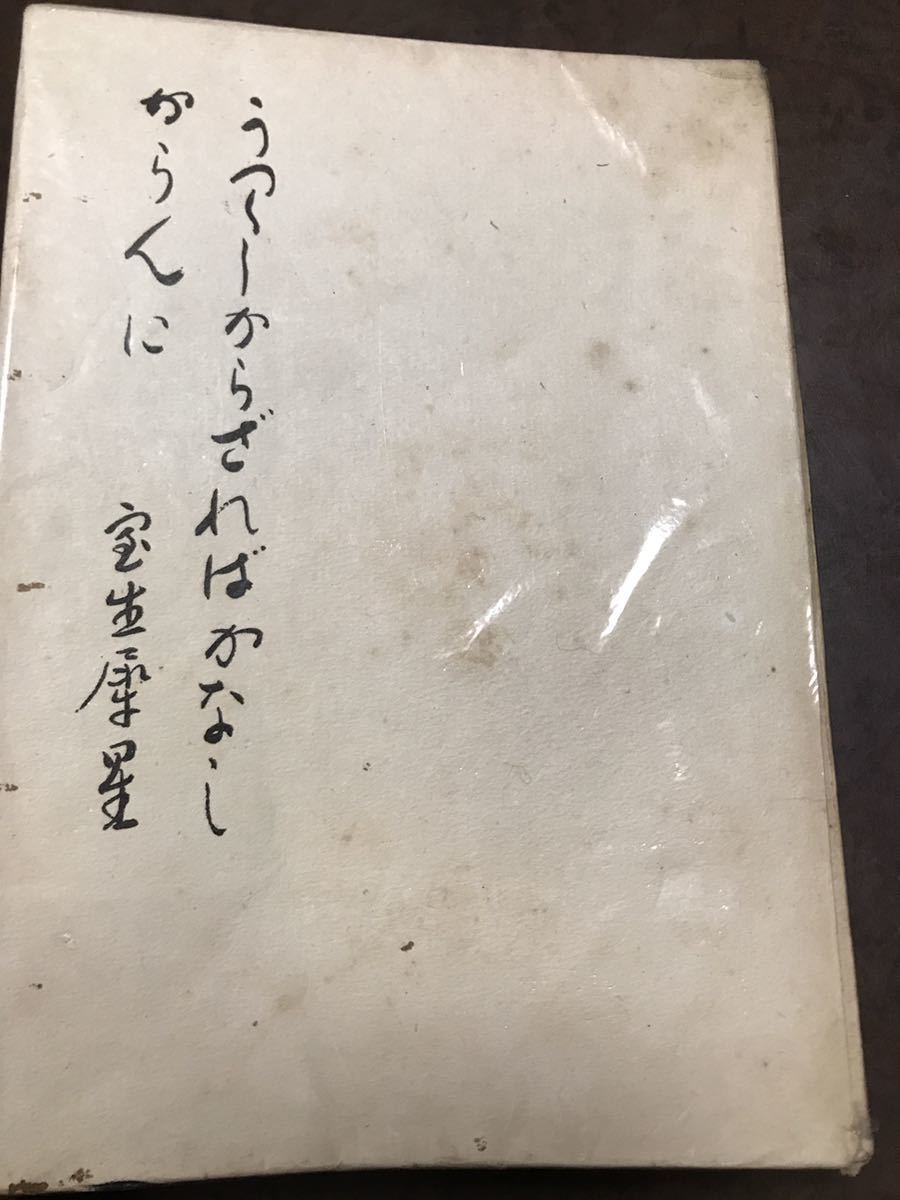 うつくしからざればかなし
からんに
室生犀星